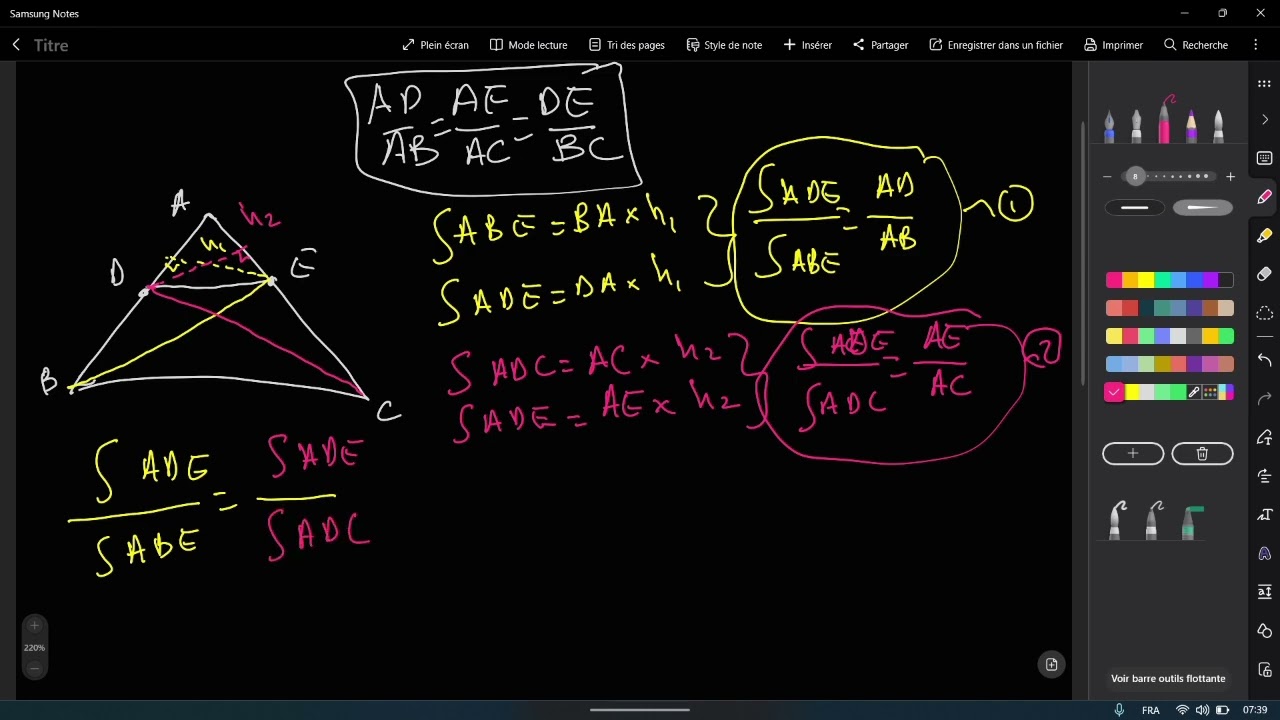 Samsung Notes
Titre
Plein écran
Mode lecture
Tri des pages
Style de note
Insérer
Partager
Enregistrer dans un fichier
Imprimer
Recherche
AD/AB = AE/AC = DE/BC
∫ABE = BA × h₁
∫ADE = DA × h₁
∫ADE/∫ABE = AD/AB
1
∫ADC = AC × h₂
∫ADE = AE × h₂
∫ADE/∫ADC = AE/AC
2
A
h₂
h₁
D
E
B
C
∫ADE/∫ABE = ∫ADE/∫ADC
8
220%
Voir barre outils flottante
FRA
07:39